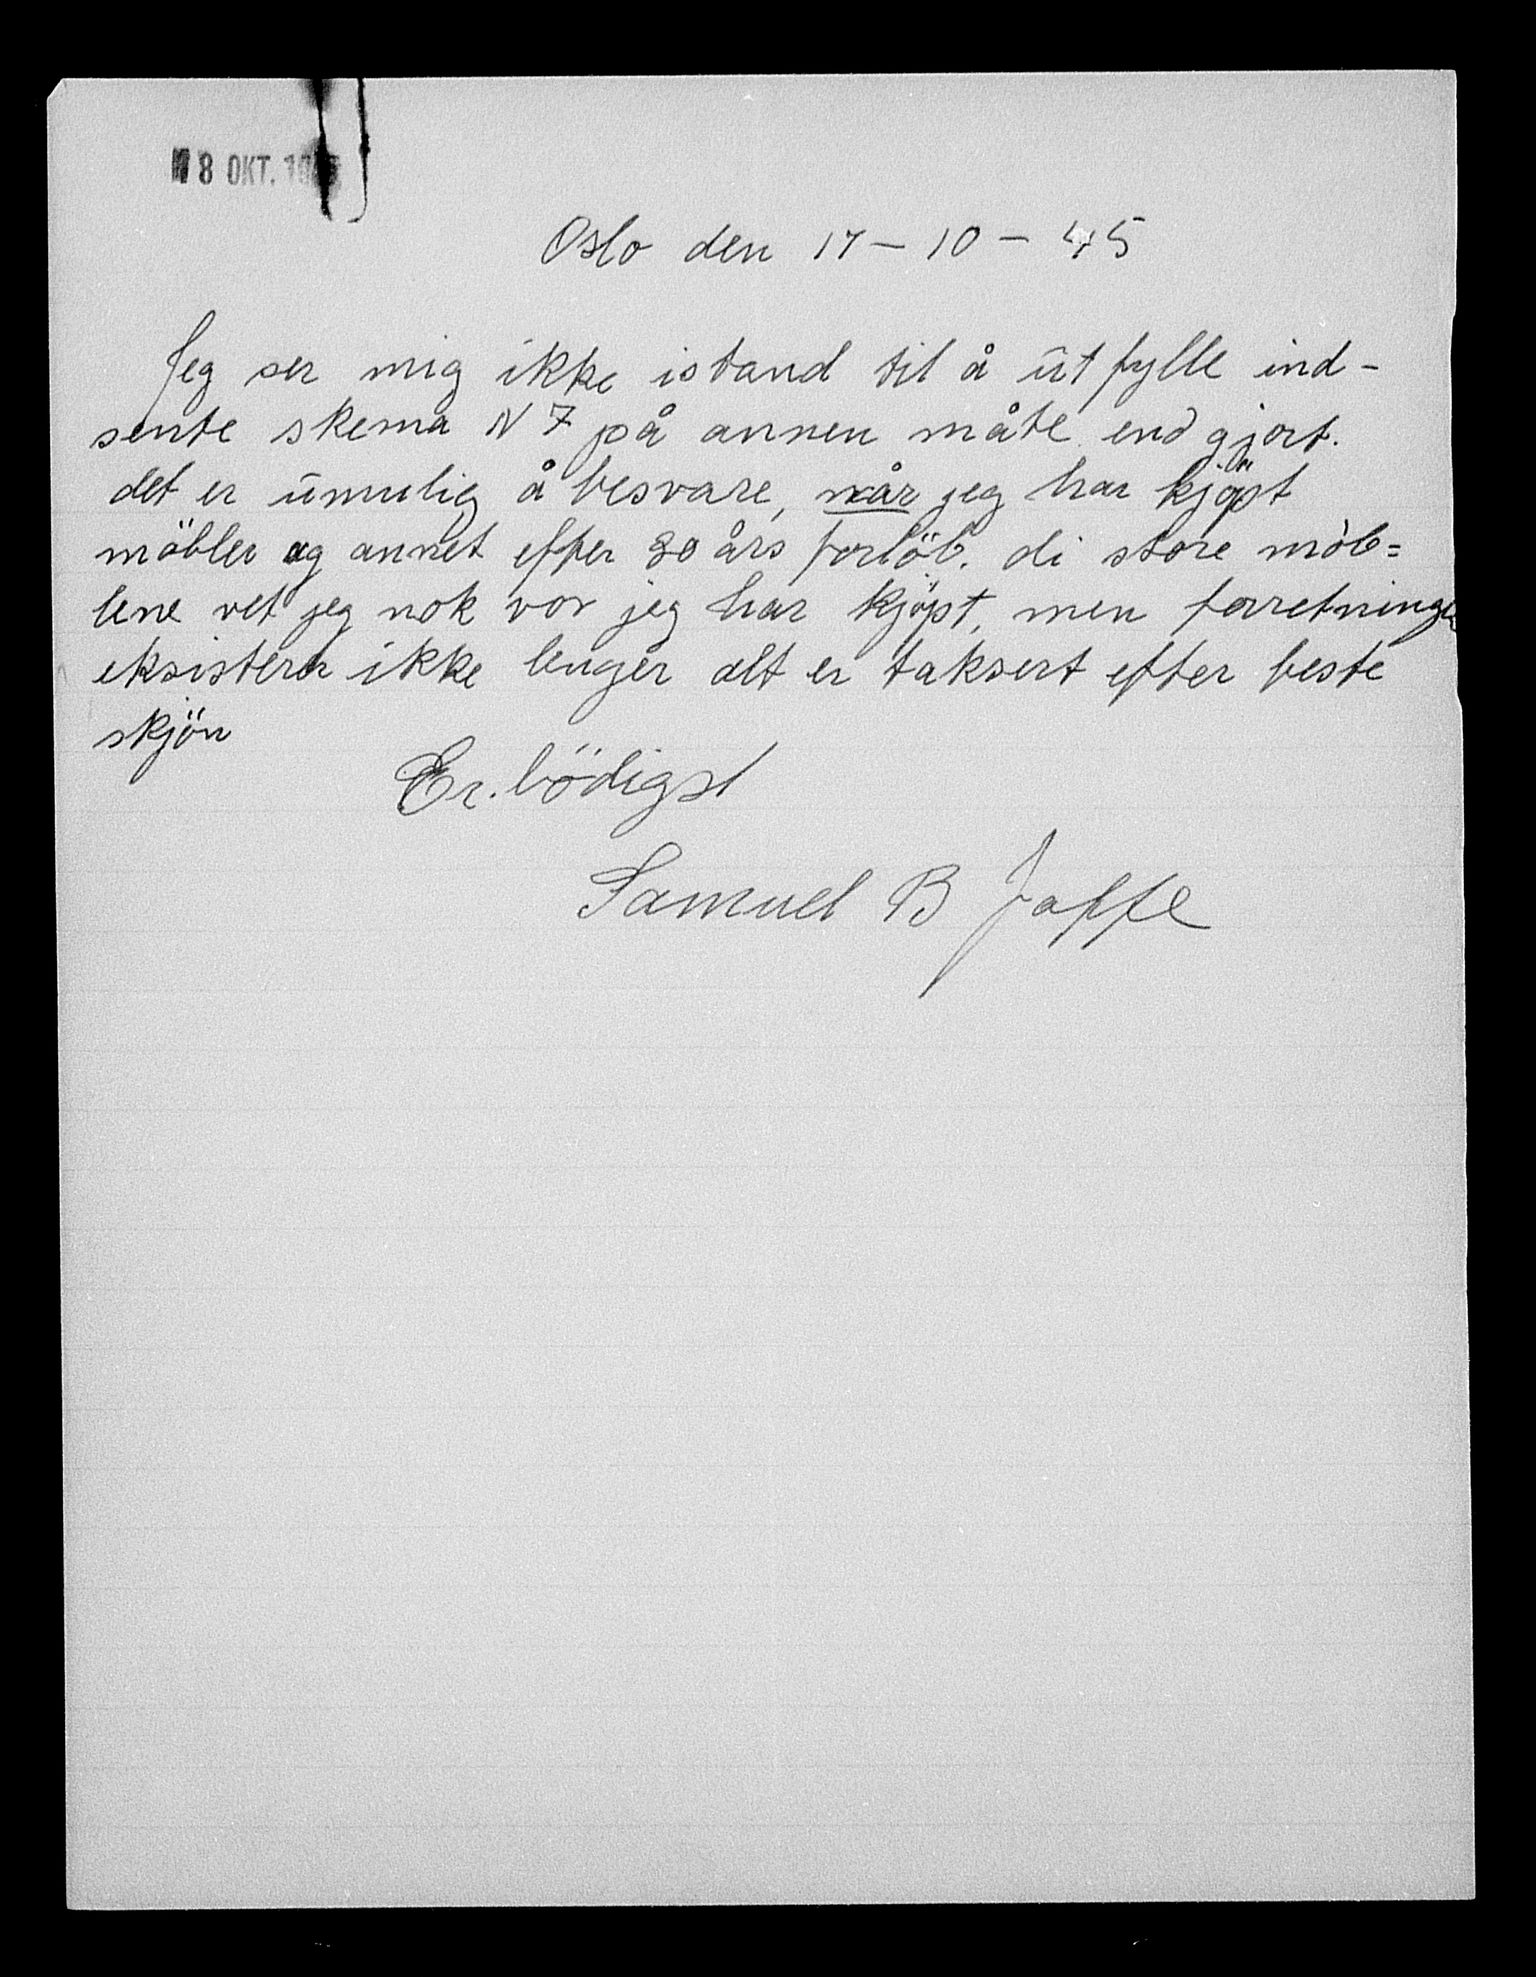 8 OKT. 19
Oslo den 17 - 10 - 45
Jeg ser mig ikke istand til å ūtfylle ind-
sente skema N 7 på annen måte end gjort.
det er ūmulig å besvare, når jeg har kjöpt
möbler og annet efter 30 års forlöb. di store möb=
lene vet jeg nok vor jeg har kjöpt, men forretningen
eksisterer ikke lenger alt er taksert efter beste
skjön
Er.bödigst
Samuel B Jaffe